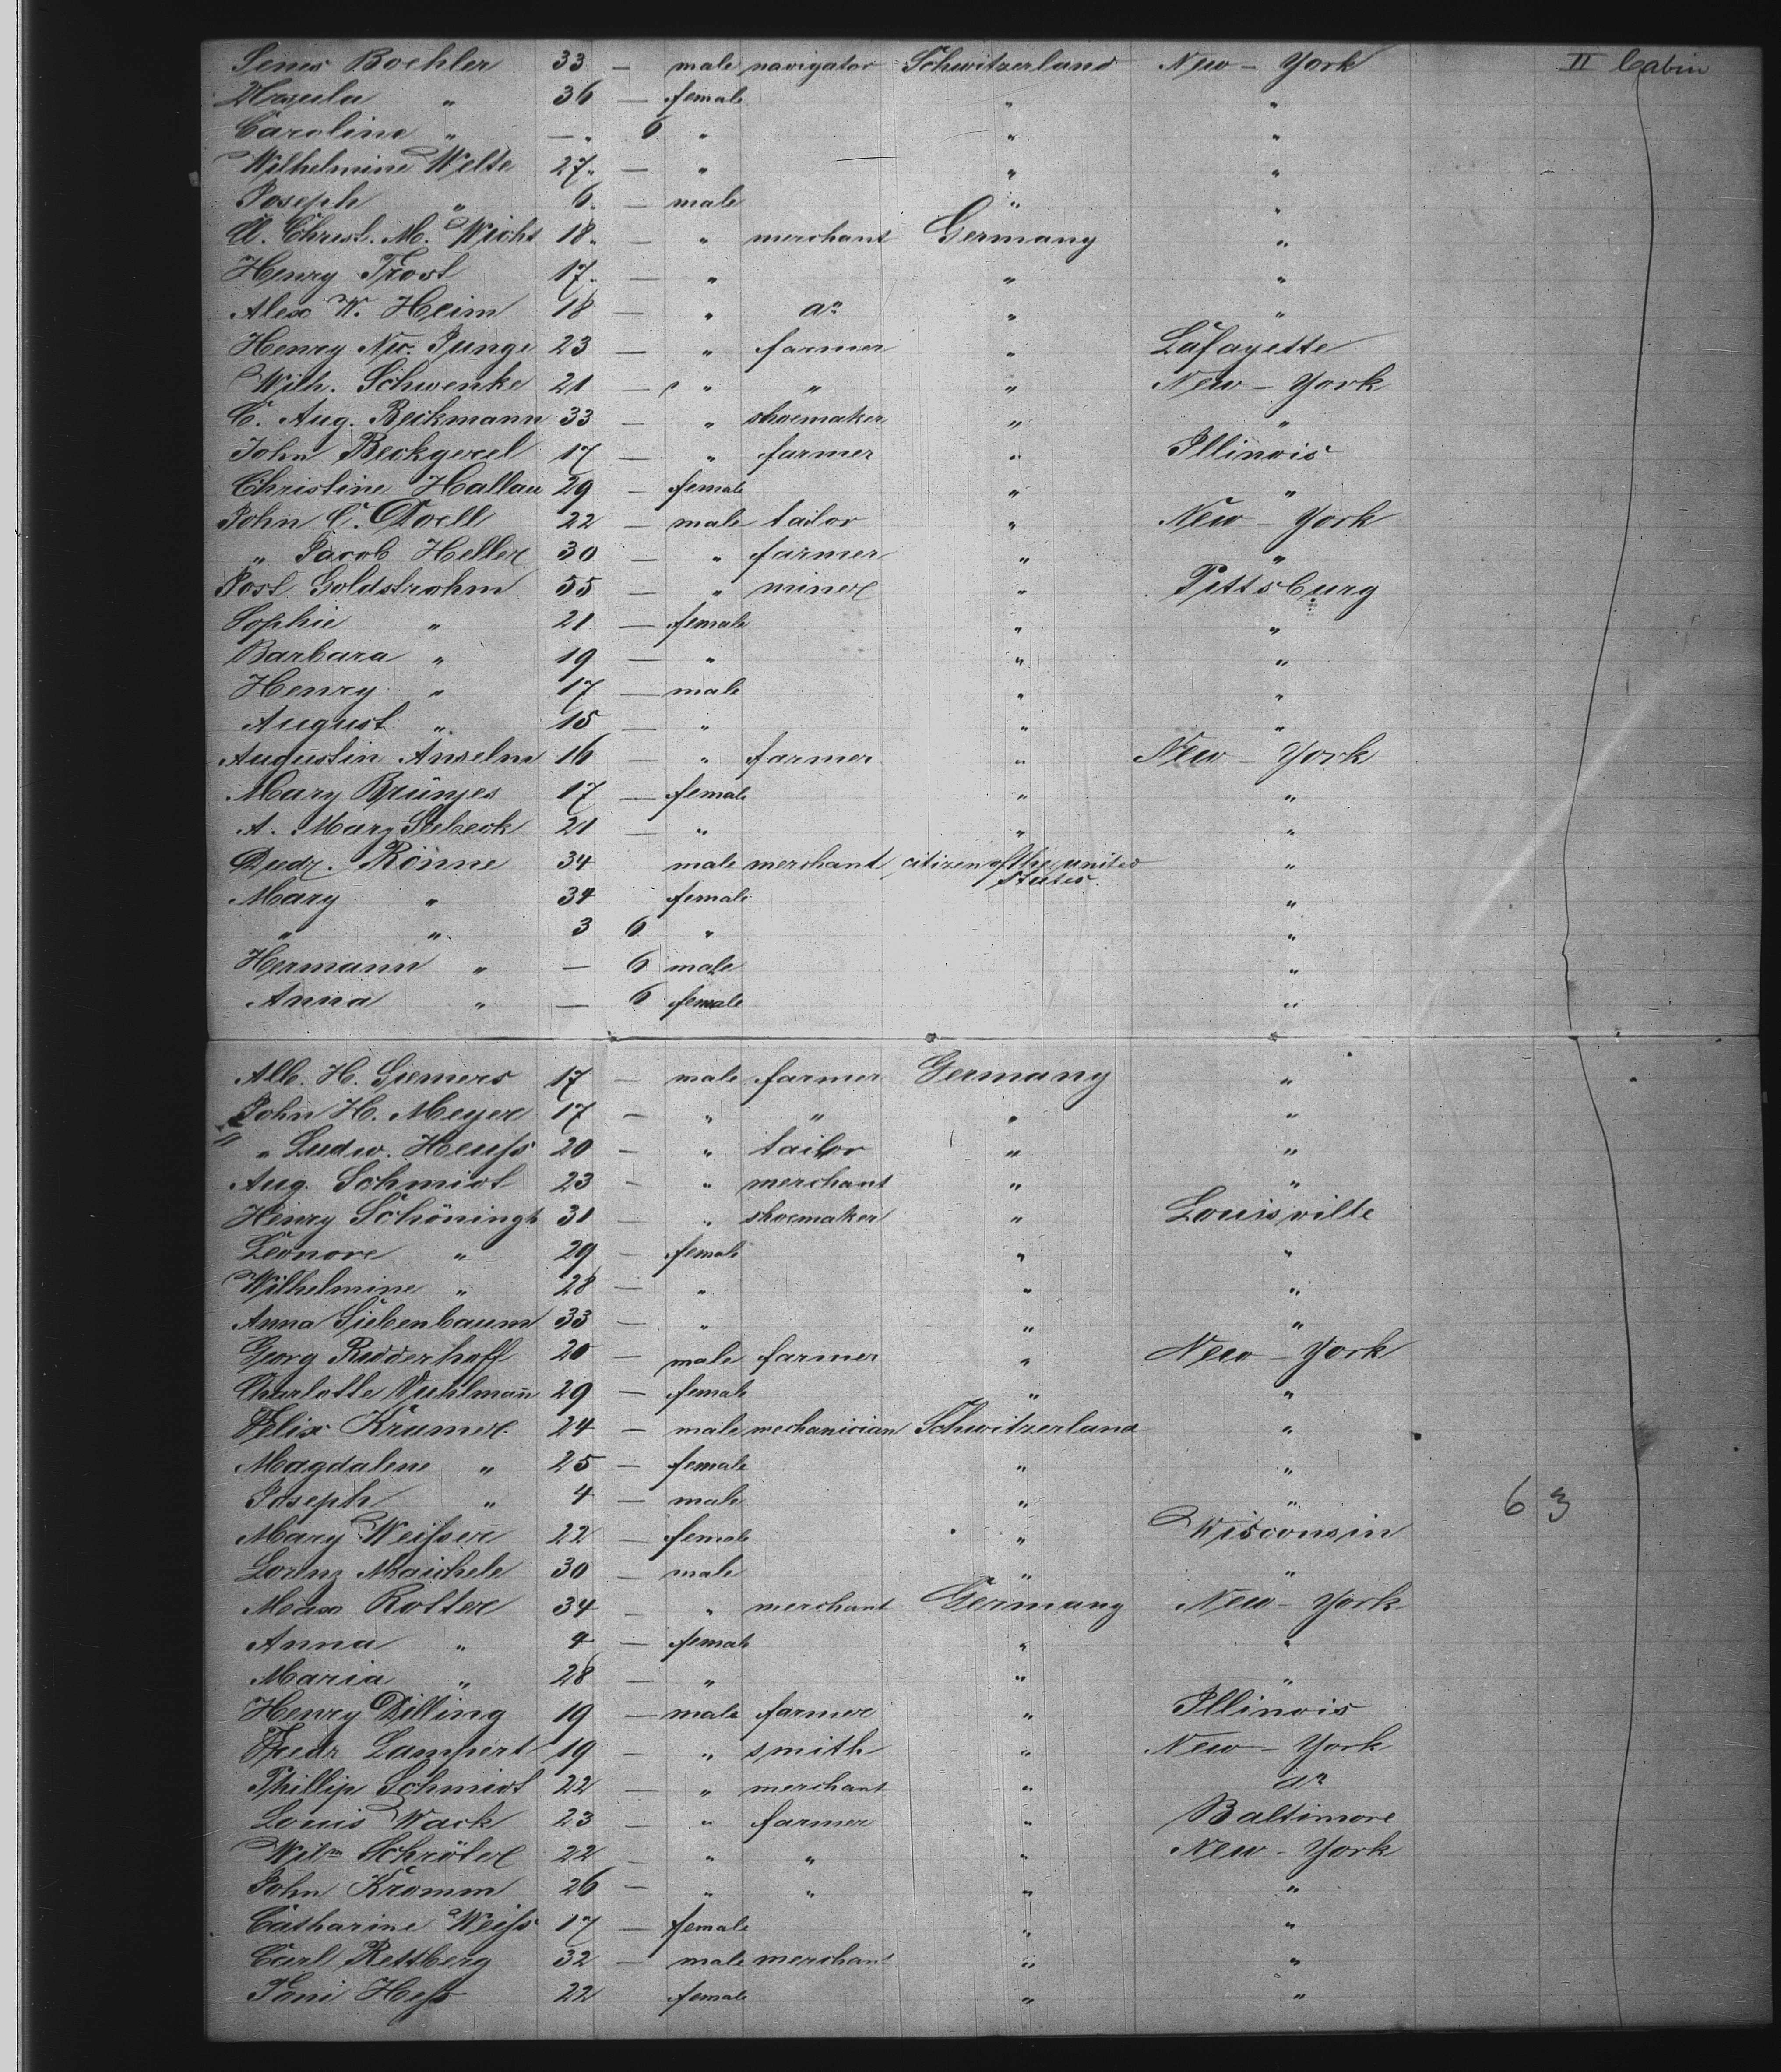 Senes Boehler 33 — male navigator Schwitzerland New - York II Cabin
" 36 — female " "
Caroline " — " 6 " " "
Wilhelmine Welte 27 " — " " "
Joseph " 6 " — male " "
A. Christ. M. Wicht 18 " — " merchant Germany "
Henry Trost 17 " — " " "
Alex W. Heim 18 — " do " "
Henry Nic. Junge 23 — " farmer " Lafayette
Wilh. Schwenke 21 — " " " New - York
C. Aug. Beckmann 33 — " shoemaker " "
John Beckgerel 17 — " farmer " Illinois
Christine Hallau 29 — female " "
John C. Doell 22 — male tailor " New - York
" Jacob Heller 30 — " farmer " "
Jost Goldstrohm 55 — " miner " Pittsburg
Sophie " 21 — female " "
Barbara " 19 — " " "
Henry " 17 — male " "
August " 15 — " " "
Augustin Anselm 16 — " farmer " New - York
Mary Brünjes 17 — female " "
A. Mary Siebeck 21 — " " "
Diedr. Rönne 34 male merchant citizen of the united "
states.
Mary " 34 female "
" " 3 6 " "
Hermann " — 6 male "
Anna " — 6 female "
Alb. H. Siemers 17 — male farmer Germany "
John H. Meyer 17 — " " " "
" Ludw. Heuſs 20 — " tailor " "
Aug. Schmidt 23 — " merchant " "
Henry Schöningh 31 — " shoemaker " Louisville
Leonore " 29 — female " "
Wilhelmine " 28 — " " "
Anna Siebenbaum 33 — " " "
Georg Ridderhoff 20 — male farmer " New - York
Charlotte Vuhlmañ 29 — female " "
Felix Krumer 24 — male mechanician Schwitzerland "
Magdalene " 25 — female " "
Joseph " 4 — male " " 63
Mary Weiſser 22 — female " Wisconsin
Lorenz Maichele 30 — male " "
Max Rotter 34 — " merchant Germany New - York
Anna " 4 — female " "
Maria " 28 — " " "
Henry Dilling 19 — male farmer " Illinois
Friedr Lampert 19 — " smith " New - York
Phillip Schmidt 22 — " merchant " do
Louis Wack 23 — " farmer " Baltimore
Wilm Schröter 22 — " " " New - York
John Kromm 26 — " " " "
Catharine Weiſs 17 — female " "
Carl Rettberg 32 — male merchant " "
Toni Heſs 22 female " "